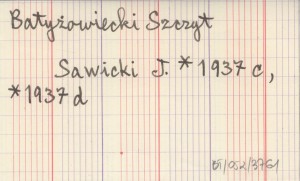 Batyżowiecki Szczyt
Sawicki J. * 1937 c,
* 1937 d
BT/052/3761